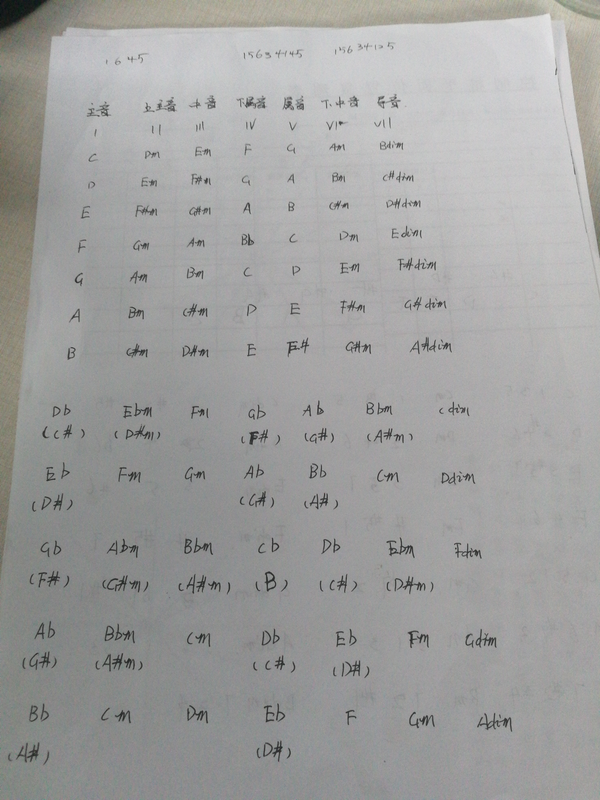 1645 15634145 15634125
主音 上主音 中音 下属音 属音 下中音 导音
I II III IV V VI VII
C Dm Em F G Am Bdim
D Em F#m G A Bm C#dim
E F#m G#m A B C#m D#dim
F Gm Am Bb C Dm Edim
G Am Bm C D Em F#dim
A Bm C#m D E F#m G#dim
B C#m D#m E F# G#m A#dim
Db Ebm Fm Gb Ab Bbm Cdim
(C#) (D#m) (F#) (G#) (A#m)
Eb Fm Gm Ab Bb Cm Ddim
(D#) (G#) (A#)
Gb Abm Bbm Cb Db Ebm Fdim
(F#) (G#m) (A#m) (B) (C#) (D#m)
Ab Bbm Cm Db Eb Fm Gdim
(G#) (A#m) (C#) (D#)
Bb Cm Dm Eb F Gm Adim
(A#) (D#)